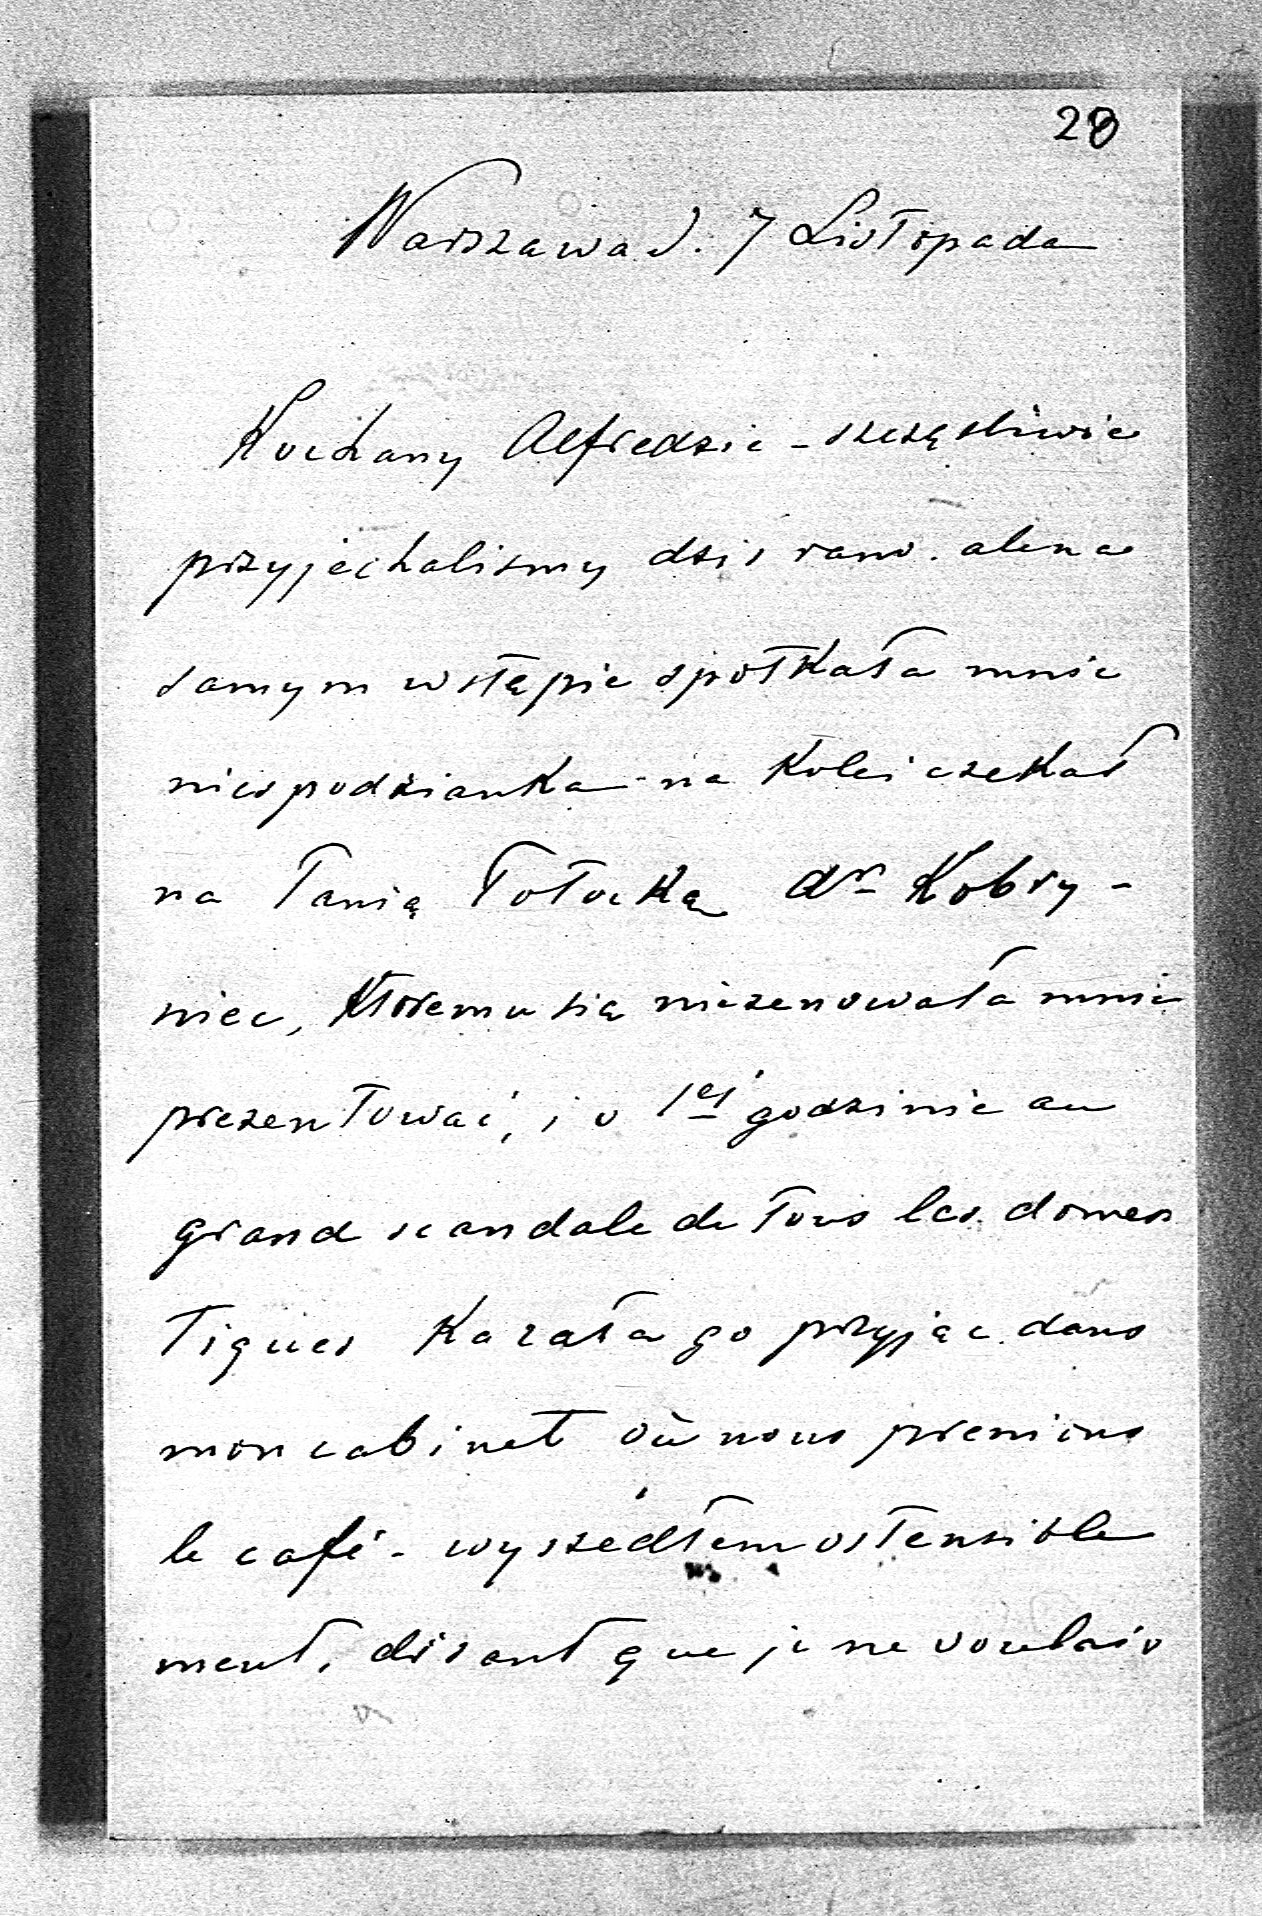 28
Warszawa d. 7 Listopada
Kochany Alfredzie - szczęsliwie
przyjechalismy dzis rano. ale na
samym wstępie spotkała mnie
niespodzianka - na Kolei czekał
na Panią Potocką dr Kobry-
niec, Ktoremu się nie zenowała mnie
prezentować, i o 1ej godzinie au
grand scandale de tous les domes
tiques Kazała go przyjąc dans
mon cabinet où nous prenions
le café - wyszedłem ostensible
ment, disant que je ne voulais